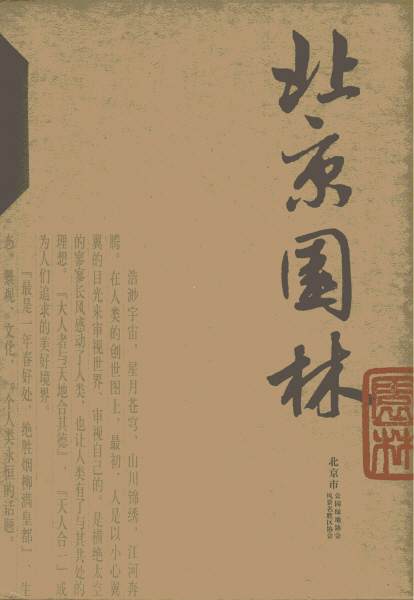 北京园林
北京市
公园绿地协会
风景名胜区协会
浩渺宇宙，星月苍穹，山川锦绣，江河奔
腾。在人类的创世图上，最初，人是以小心翼
翼的目光来审视世界、审视自己的。是横绝太空
的寥寥长风感动了人类，也让人类有了与其共处的
理想。『大人者与天地合其德』，『天人合一』成
为人们追求的美好境界。
『最是一年春好处，绝胜烟柳满皇都』，生
态，景观，文化，一个人类永恒的话题。
园林